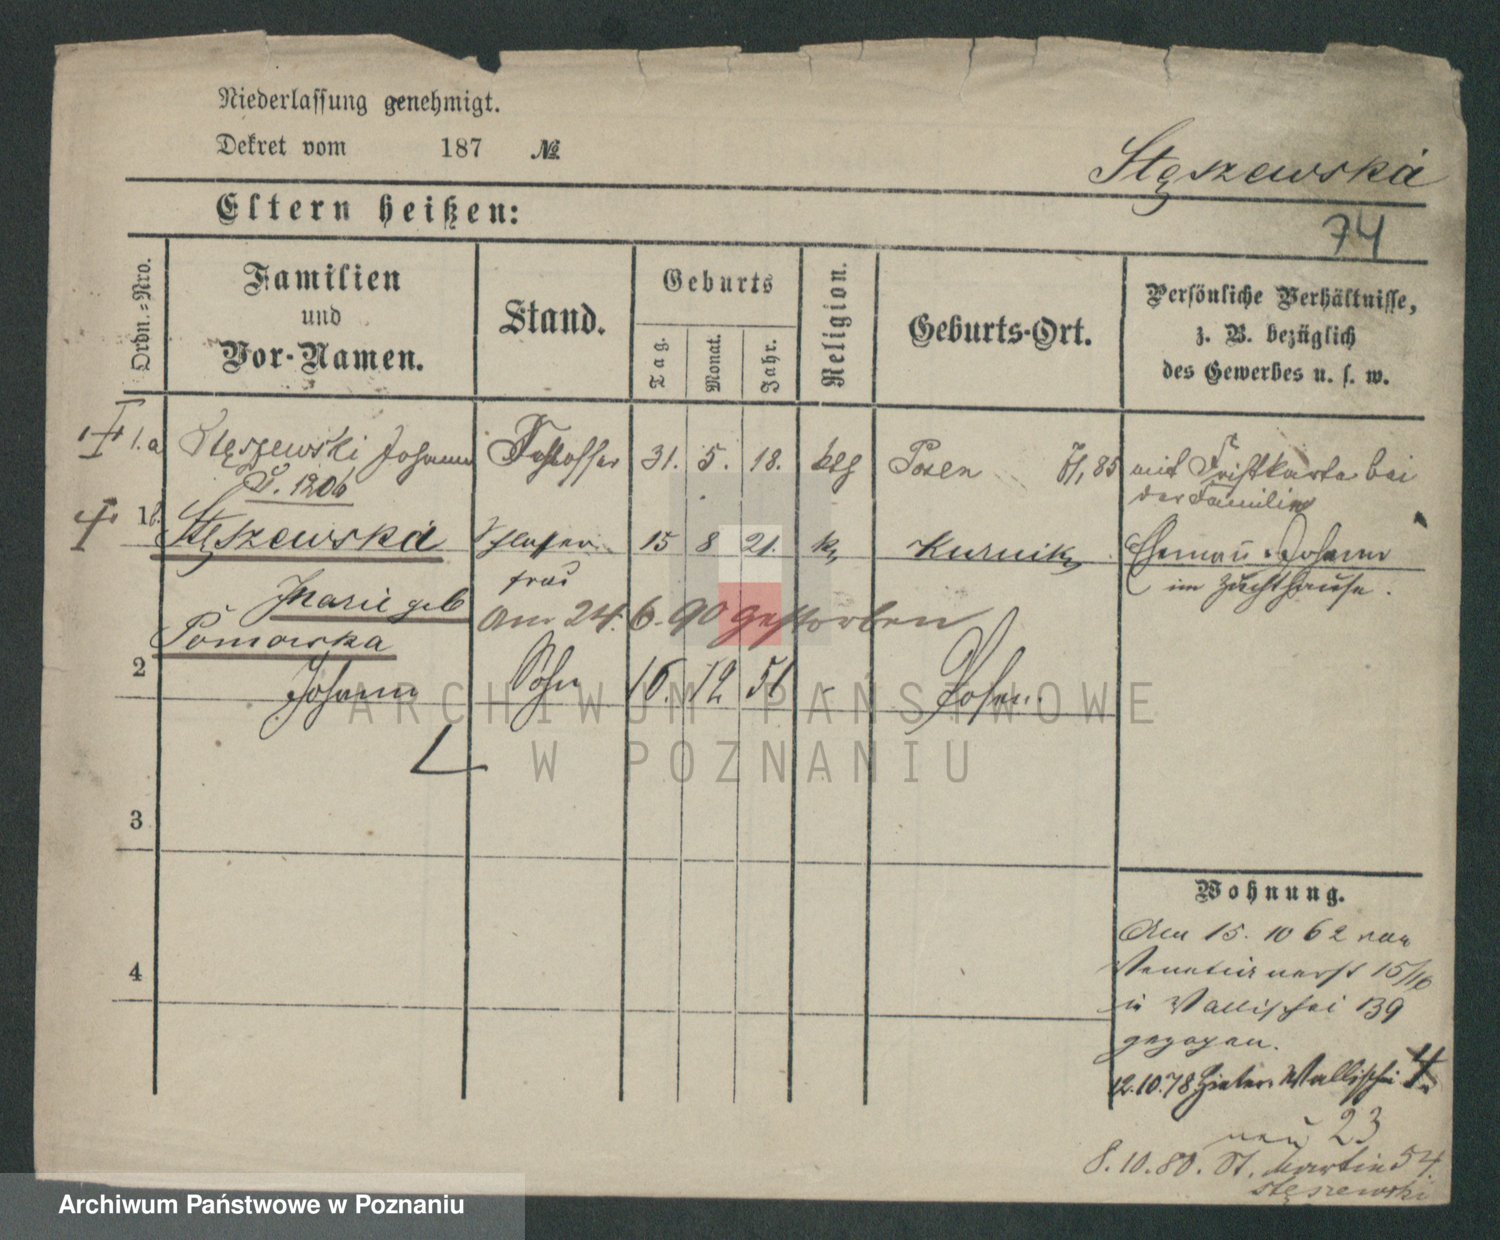 Niederlassung genehmigt.
Dekret vom 187 №
Stęszewska
Eltern heißen:
74
Ordn.=Nro.
Familien
und
Vor-Namen.
Stand.
Geburts
Tag.
Monat.
Jahr.
Religion.
Geburts-Ort.
Persönliche Verhältnisse,
z. B. bezüglich
des Gewerbes u. s. w.
1.a Stęszewski Johann Schlosser 31. 5. 18. ktg Posen 85 mit Fristkarte bei
der Familie
1b. Stęszewska 15 8 21. k Kurnik Ehemann Johann
frau im Zuchthause.
Marie geb
Pomorska am 24. 6. 90 gestorben
2 Johann Sohn 16. 12 51 Posen.
3
4
Wohnung.
Am 15. 10 62 von
Venetianerstr 15/16
n Wallischei 139
gezogen.
12.10.78 Hinter Wallischei 4.
neu 23
8.10.80. St. Martin 54.
Stęszewski
ARCHIWUM PAŃSTWOWE
W POZNANIU
Archiwum Państwowe w Poznaniu